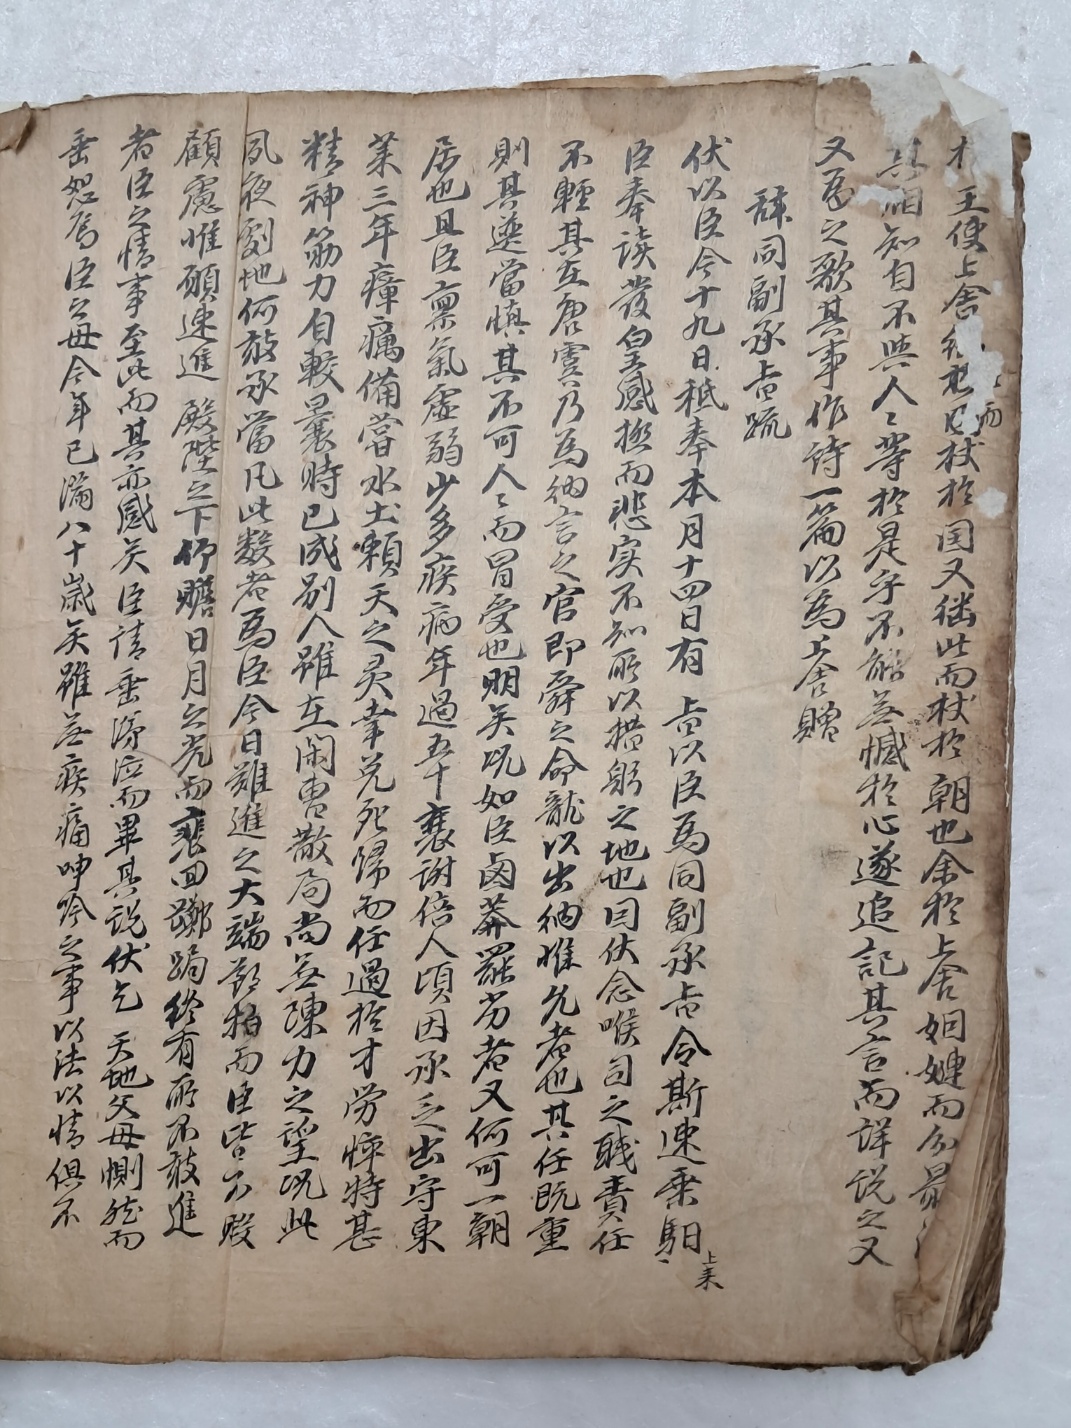 王使上舍 杖於国又継此而杖於朝也余於上舍姻婕而分最
而
其相知自不與人〻等於是乎不能無憾於心遂追記其言而詳說之又
又爲之歌其事作詩一篇以為上舍贈
辞同副承旨疏
伏以臣今十九日秪奉本月十四日有 旨以臣為同副承旨令斯速乗馹
上来
臣奉读發皇感極而悲实不知所以措躬之地也囙伏念喉司之職責任
不輕其在唐虞乃為納言之官即舜之命龍以出納惟允者也其任既重
則其選當慎其不可人〻而冒受也明矣况如臣鹵莽罷劣者又何可一朝
居也且臣禀氣虛弱少多疾病年過五十衰謝倍人頃因承乏出守東
莱三年瘴癘備嘗水土賴天之灵幸免死帰而任過於才勞悴特甚
精神筋力自較曩時已成别人雖在閑曺散局尚無陳力之望况此
夙夜劇地何敢承當凡此数者為臣今日難進之大端 而臣皆不暇
顧慮惟願速進 殿陛之下仰瞻日月之光而裵回躑跼終有所不敢進
者臣之情事至此而其亦慼矣臣請垂涕泣而畢其説伏乞 天地父母惻然而
垂恕焉臣之母今年已滿八十歲矣雖無疾痛呻吟之事以法以情俱不